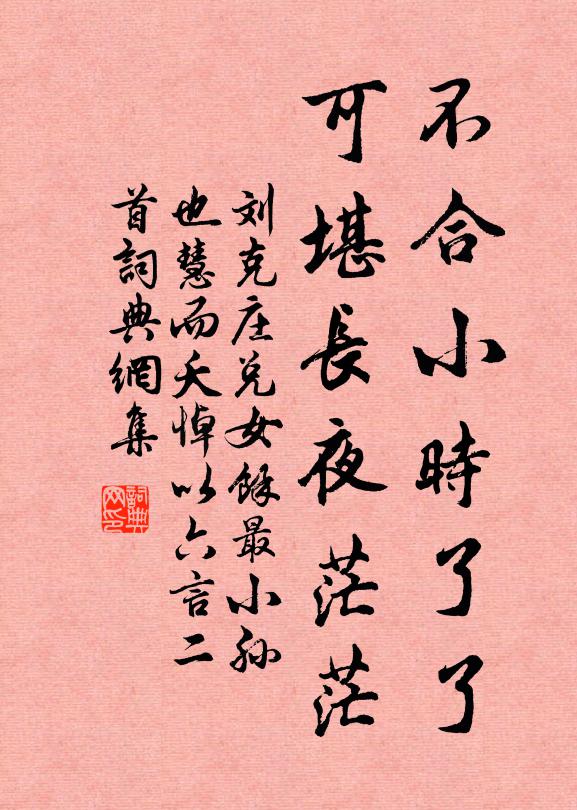 不合小時了了
可堪長夜茫茫
刘克庄兑女餘最小孙
也慧而夭悼以六言二
首詞典網集
詞典
网印